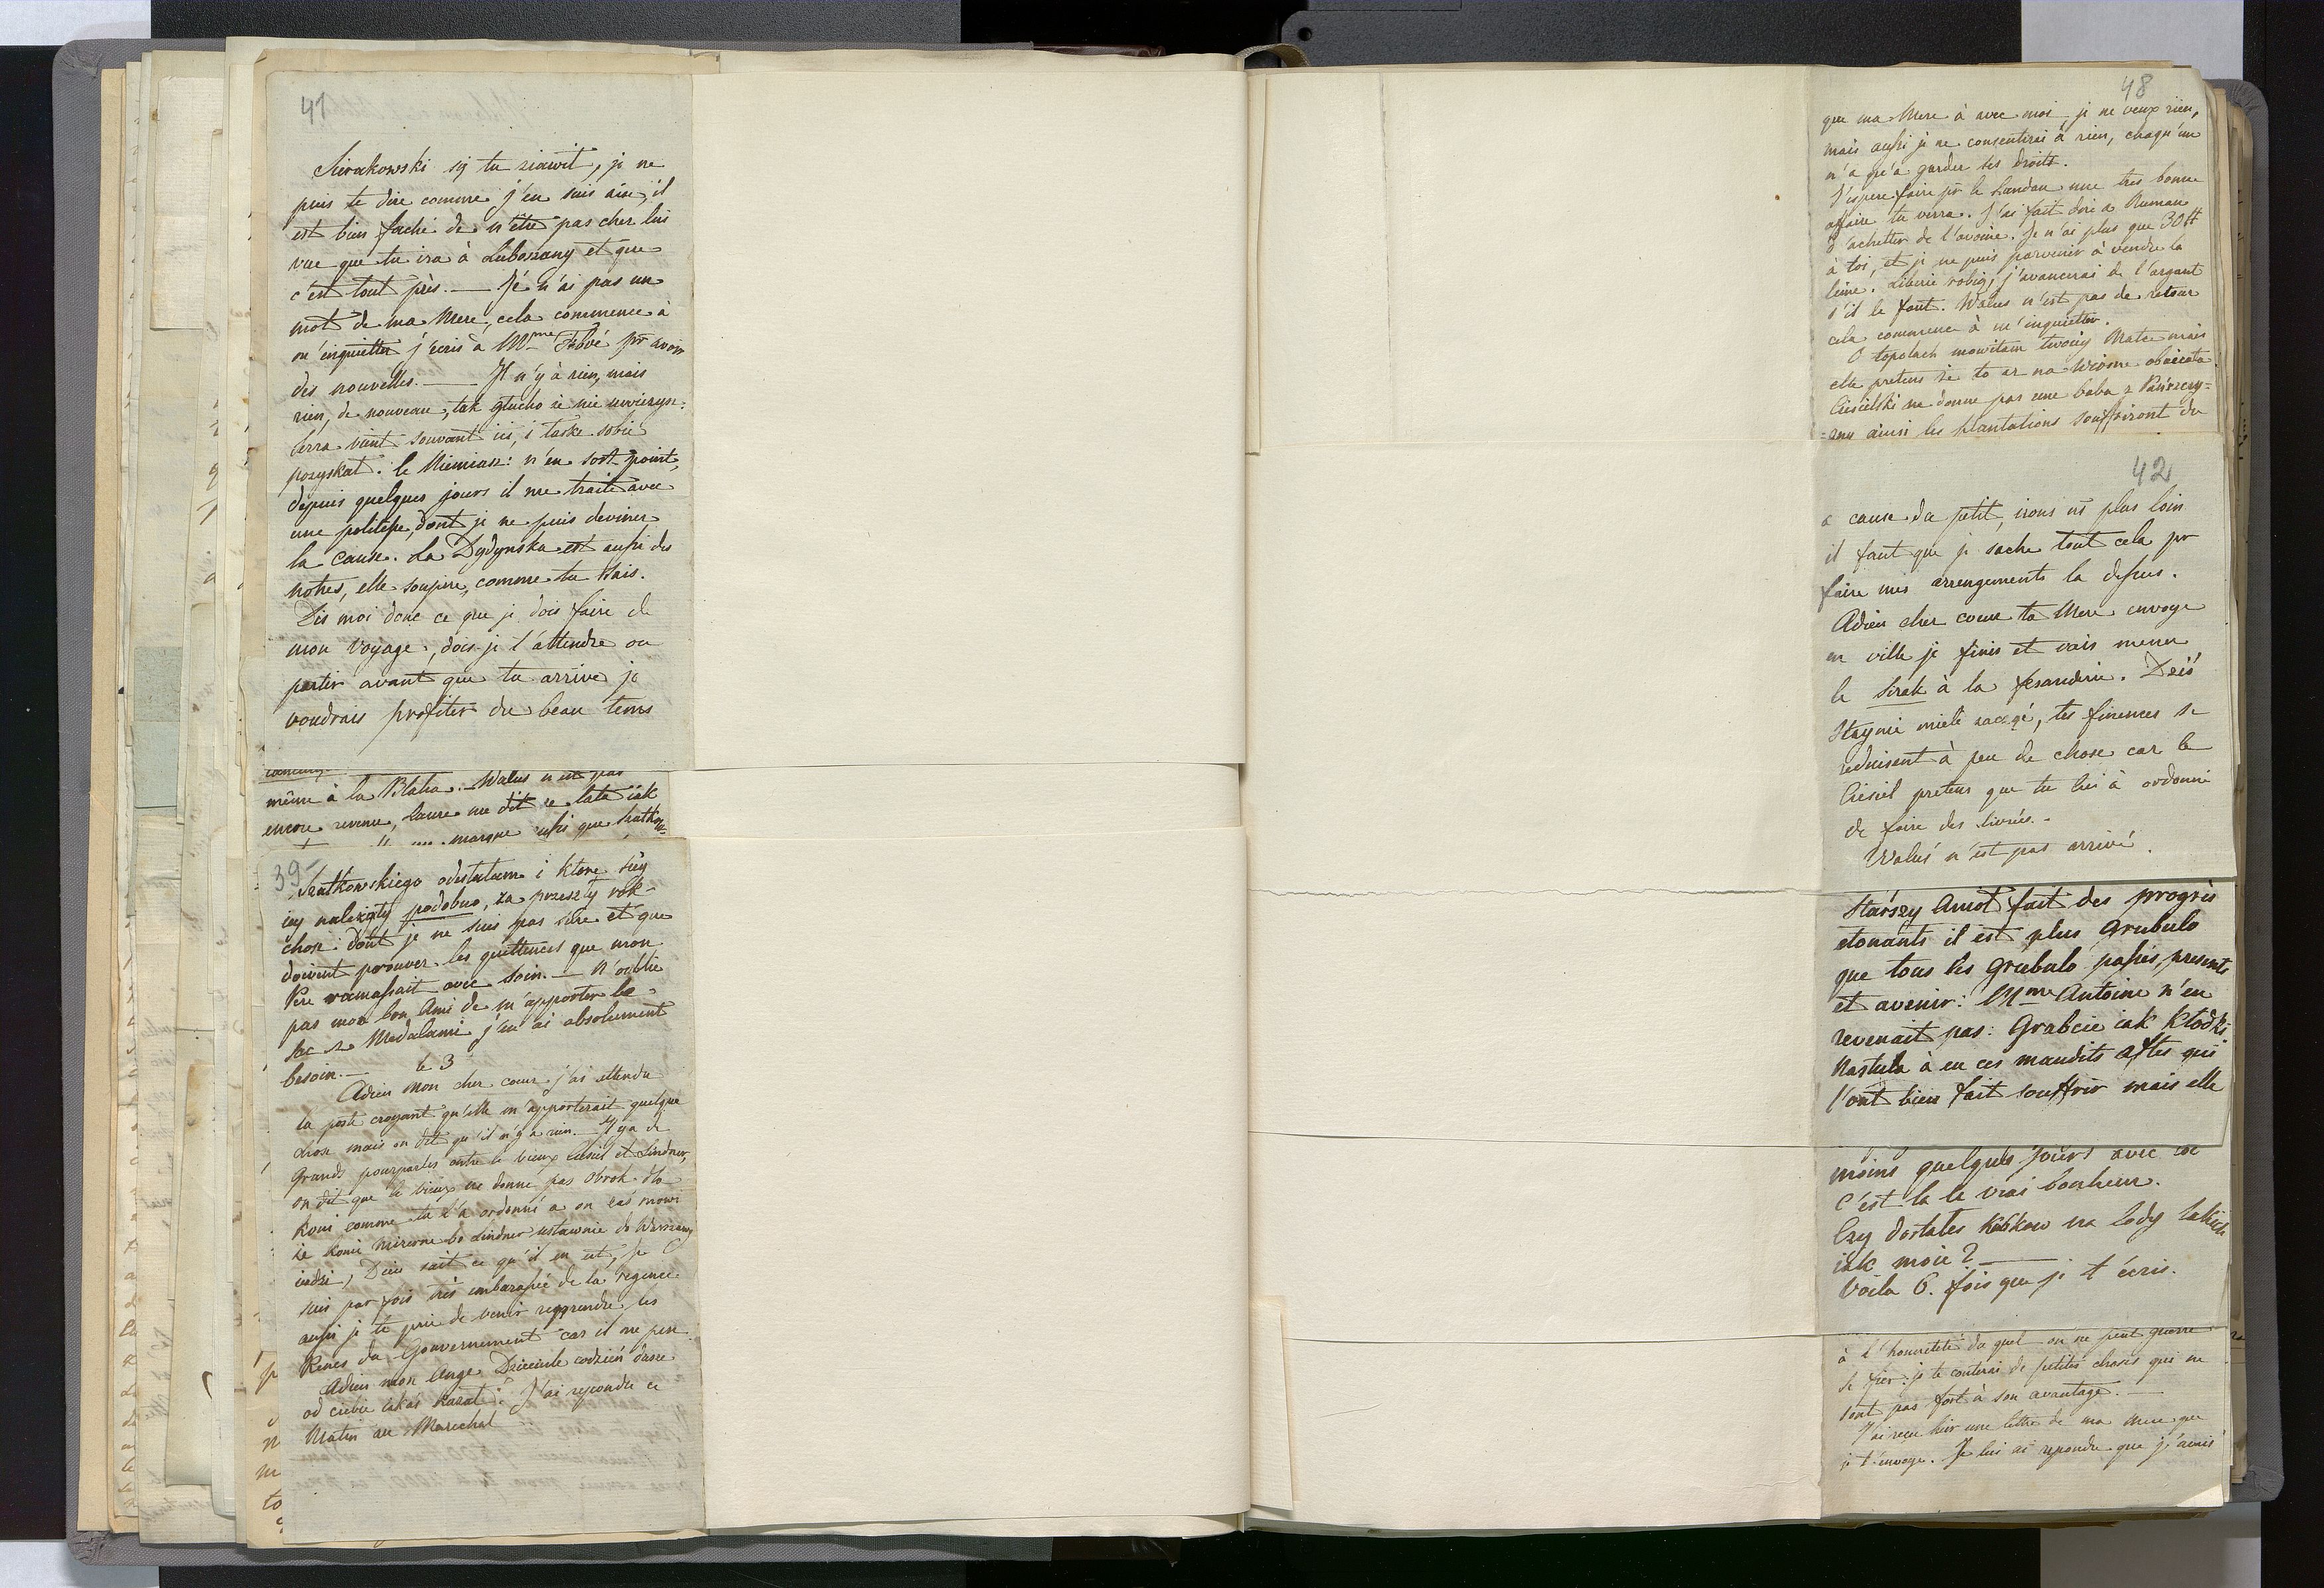 41
Sierakowski się tu ziawił, je ne
puis te dire comme j'en suis aise, il
est bien faché de n'être pas chez lui
vue que tu ira à Luboszany et que
c'est tout près. — Je n'ai pas un
mot de ma Mere, cela commence à
m'inquietter j'écris à Mme Fové pr avoir
des nouvelles. — Il n'y à rien, mais
rien, de nouveau, tak głucho że nie uwierzysz.
vient souvant ici, i łaskę sobie
pozyskał. le n'en sort point,
depuis quelques jours il me traite avec
une politesse, dont je ne puis deviner
la cause. La Dydynska est aussi des
notres, elle soupire, comme tu sais.
Dis moi donc ce que je dois faire de
mon voyage, dois-je t'attendre ou
partir avant que tu arrive je
voudrais profiter du beau tems
même à la Blaha. Walus n'est pas
encore revenu, Laure me dit że lata iak
marque aussi que
39
Szutkowskiego odesłałam i ktore się
iey należały podobno, za przeszły rok —
chose dont je ne suis pas sûre et que
doivent prouver les quittences que mon
Pere ramassait avec soin. — N'oublie
pas mon bon Ami de m'apporter le
sac z Medalami j'en ai absolument
besoin. —
le 3
Adieu mon cher coeur j'ai attendu
la poste croyant qu'elle m'apporterait quelque
chose mais on dit qu'il n'y a rien. Il y a de
Grands pourparles entre le vieux Ciesiel et Lindner,
on dit que le vieux ne donne pas obrok dla
koni comme tu l'a ordonné a on zaś mowi
że konie mizerne bo Lindner ustawnie do Warszawy
iezdzi, Dieu sait ce qu'il en est, je
suis par fois très embarassée de la regence
aussi je te prie de venir repprendre les
Renes du Gouvernement car il me pese.
Adieu mon Ange Dziecięcie codzień
od ciebie iakaś kazał? J'ai repondu ce
Matin au Marechal
48
que ma Mere à avec moi, je ne veux rien,
mais aussi je ne consentirai à rien, chaqu'un
n'a qu'à garder ses droits.
J'espere faire pr le Landau une tres bonne
affaire tu verra. J'ai fait dire a Ruman
d'achetter de l'avoine. Je n'ai plus que 30#
à toi, et je ne puis parvenir à vendre la
leine. Liberie robią, j'avancerai de l'argant
s'il le faut. Walus n'est pas de retour
cela commence à m'inquietter.
O topolach mowiłam twoiey Matce mais
elle pretens że to aż na Wiosne obiecała
Ciesielski ne donne pas une baba z Pańszczy=
=zny ainsi les plantations souffriront du
42
a cause du petit, irons ns plus loin
il faut que je sache tout cela pr
faire mes arrengements la dessus.
Adieu cher coeur ta Mere envoye
en ville je finis et vais mener
le Sirak à la fesanderie. Dziś
Stajnie mieli zacząć, tes finences se
reduisent à peu de chose car le
Ciesiel pretens que tu lui à ordonné
de faire des livrées. —
Waluś n'est pas arrivé.
Starszy Amot fait des progrès
etonants il est plus Grubulo
que tous les Grubulo passés, presents
et avenir: Mme Antoine n'en
revenait pas: Grabcie iak Kłodki
Nastula à eu ces maudits aftes qui
l'ont bien fait souffrir mais elle
moins quelques jours avec
C'est la le vrai bonheur.
Czy dostałes Kubkow na lody takich
iak moie? —
Voila 6. fois que je t'écris.
à l'honnetété du quel on ne peut guerre
se fier: je te conterai de petites choses qui ne
sont pas fort à son avantage. —
J'ai reçu hier une lettre de ma Mere que
je t'envoye. Je lui ai repondu que j'avais